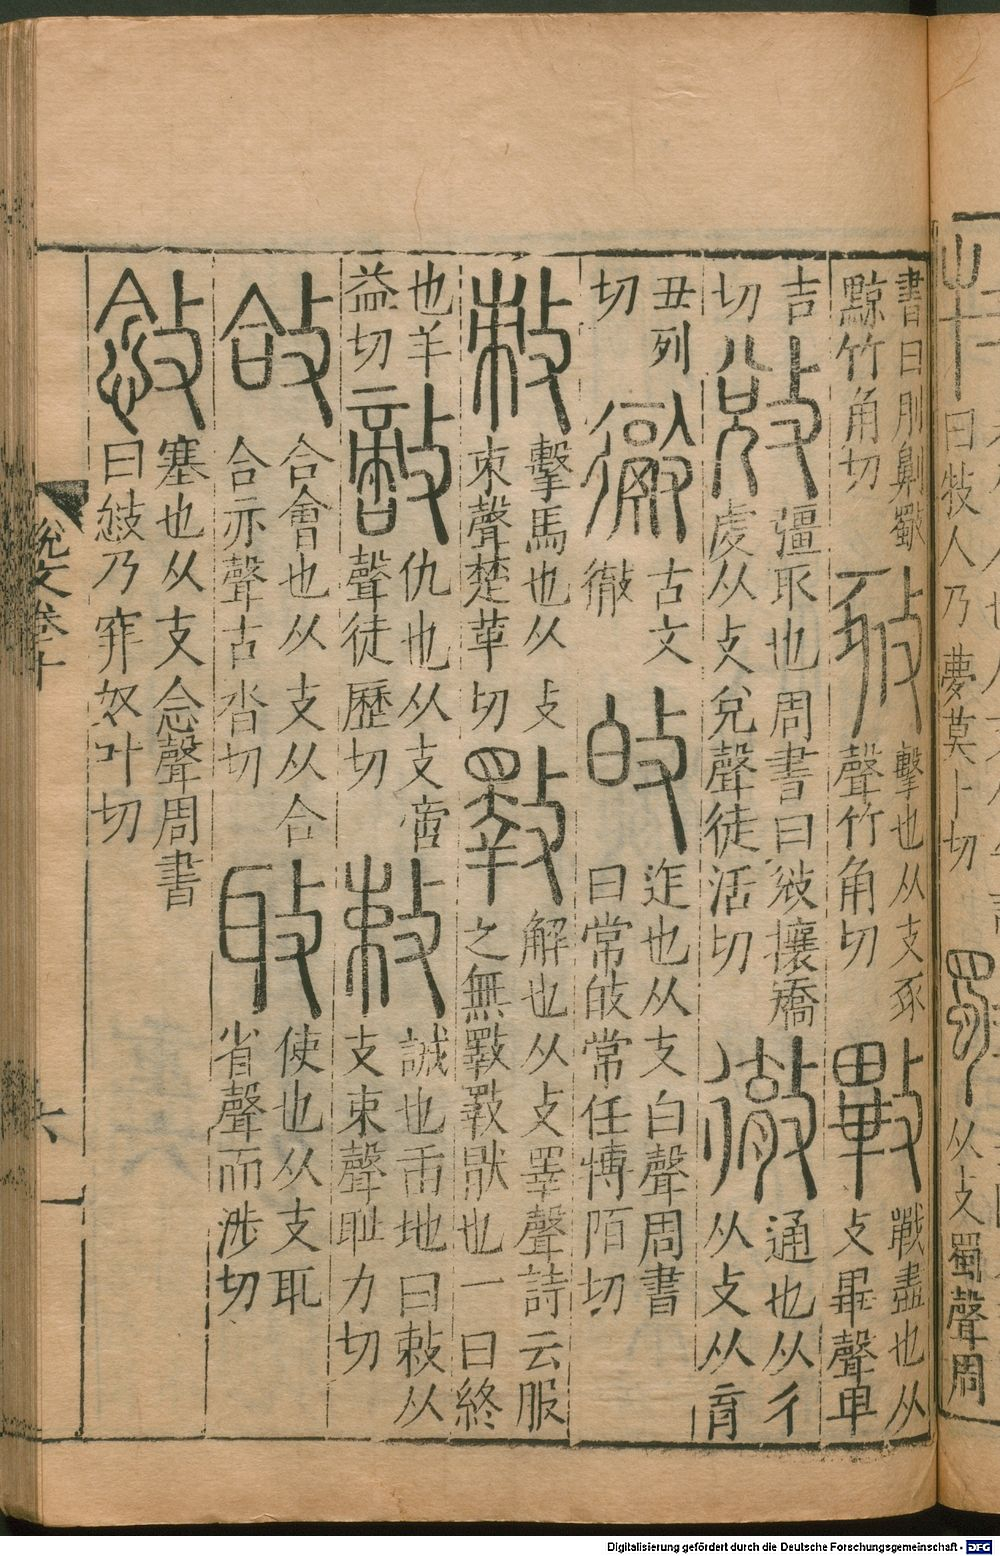 書曰刖劓斀
黥竹角切
𢽴
擊也从攴豖
聲竹角切
𢾾
𢧕盡也从
攴畢聲卑
吉
切
敓
彊取也周書曰敓攘矯
虔从攴兌聲徒活切
徹
通也从彳
从攴从育
丑列
切
古文
徹
敀
迮也从攴白聲周書
曰常敀常任博陌切
敕
擊馬也从攴
朿聲楚革切
斁
解也从攴睪聲詩云服
之無斁斁猒也一曰終
也羊
益切
敵
仇也从攴啻
聲徒歷切
敕
誠也臿地曰敕从
攴束聲恥力切
敆
合會也从攴从合
合亦聲古沓切
使也从攴耴
省聲而涉切
敜
塞也从攴念聲周書
曰敜乃穽奴叶切
說文卷十
曰牧人乃夢莫卜切
从攴蜀聲周
Digitalisierung gefördert durch die Deutsche Forschungsgemeinschaft - DFG